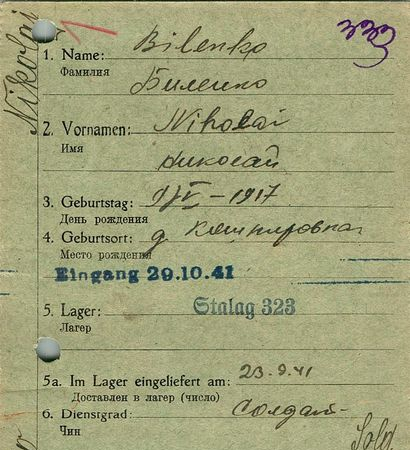 Nikolai
1. Name: Bilenko
Фамилия Биленко
2. Vornamen: Nikolai
Имя Николай
3. Geburtstag: -1917
День рождения
4. Geburtsort: д
Место рождения
Eingang 29.10.41
5. Lager: Stalag 323
Лагер
5a. Im Lager eingeliefert am: 23.9.41
Доставлен в лагер (число)
6. Dienstgrad: Солдат
Чин